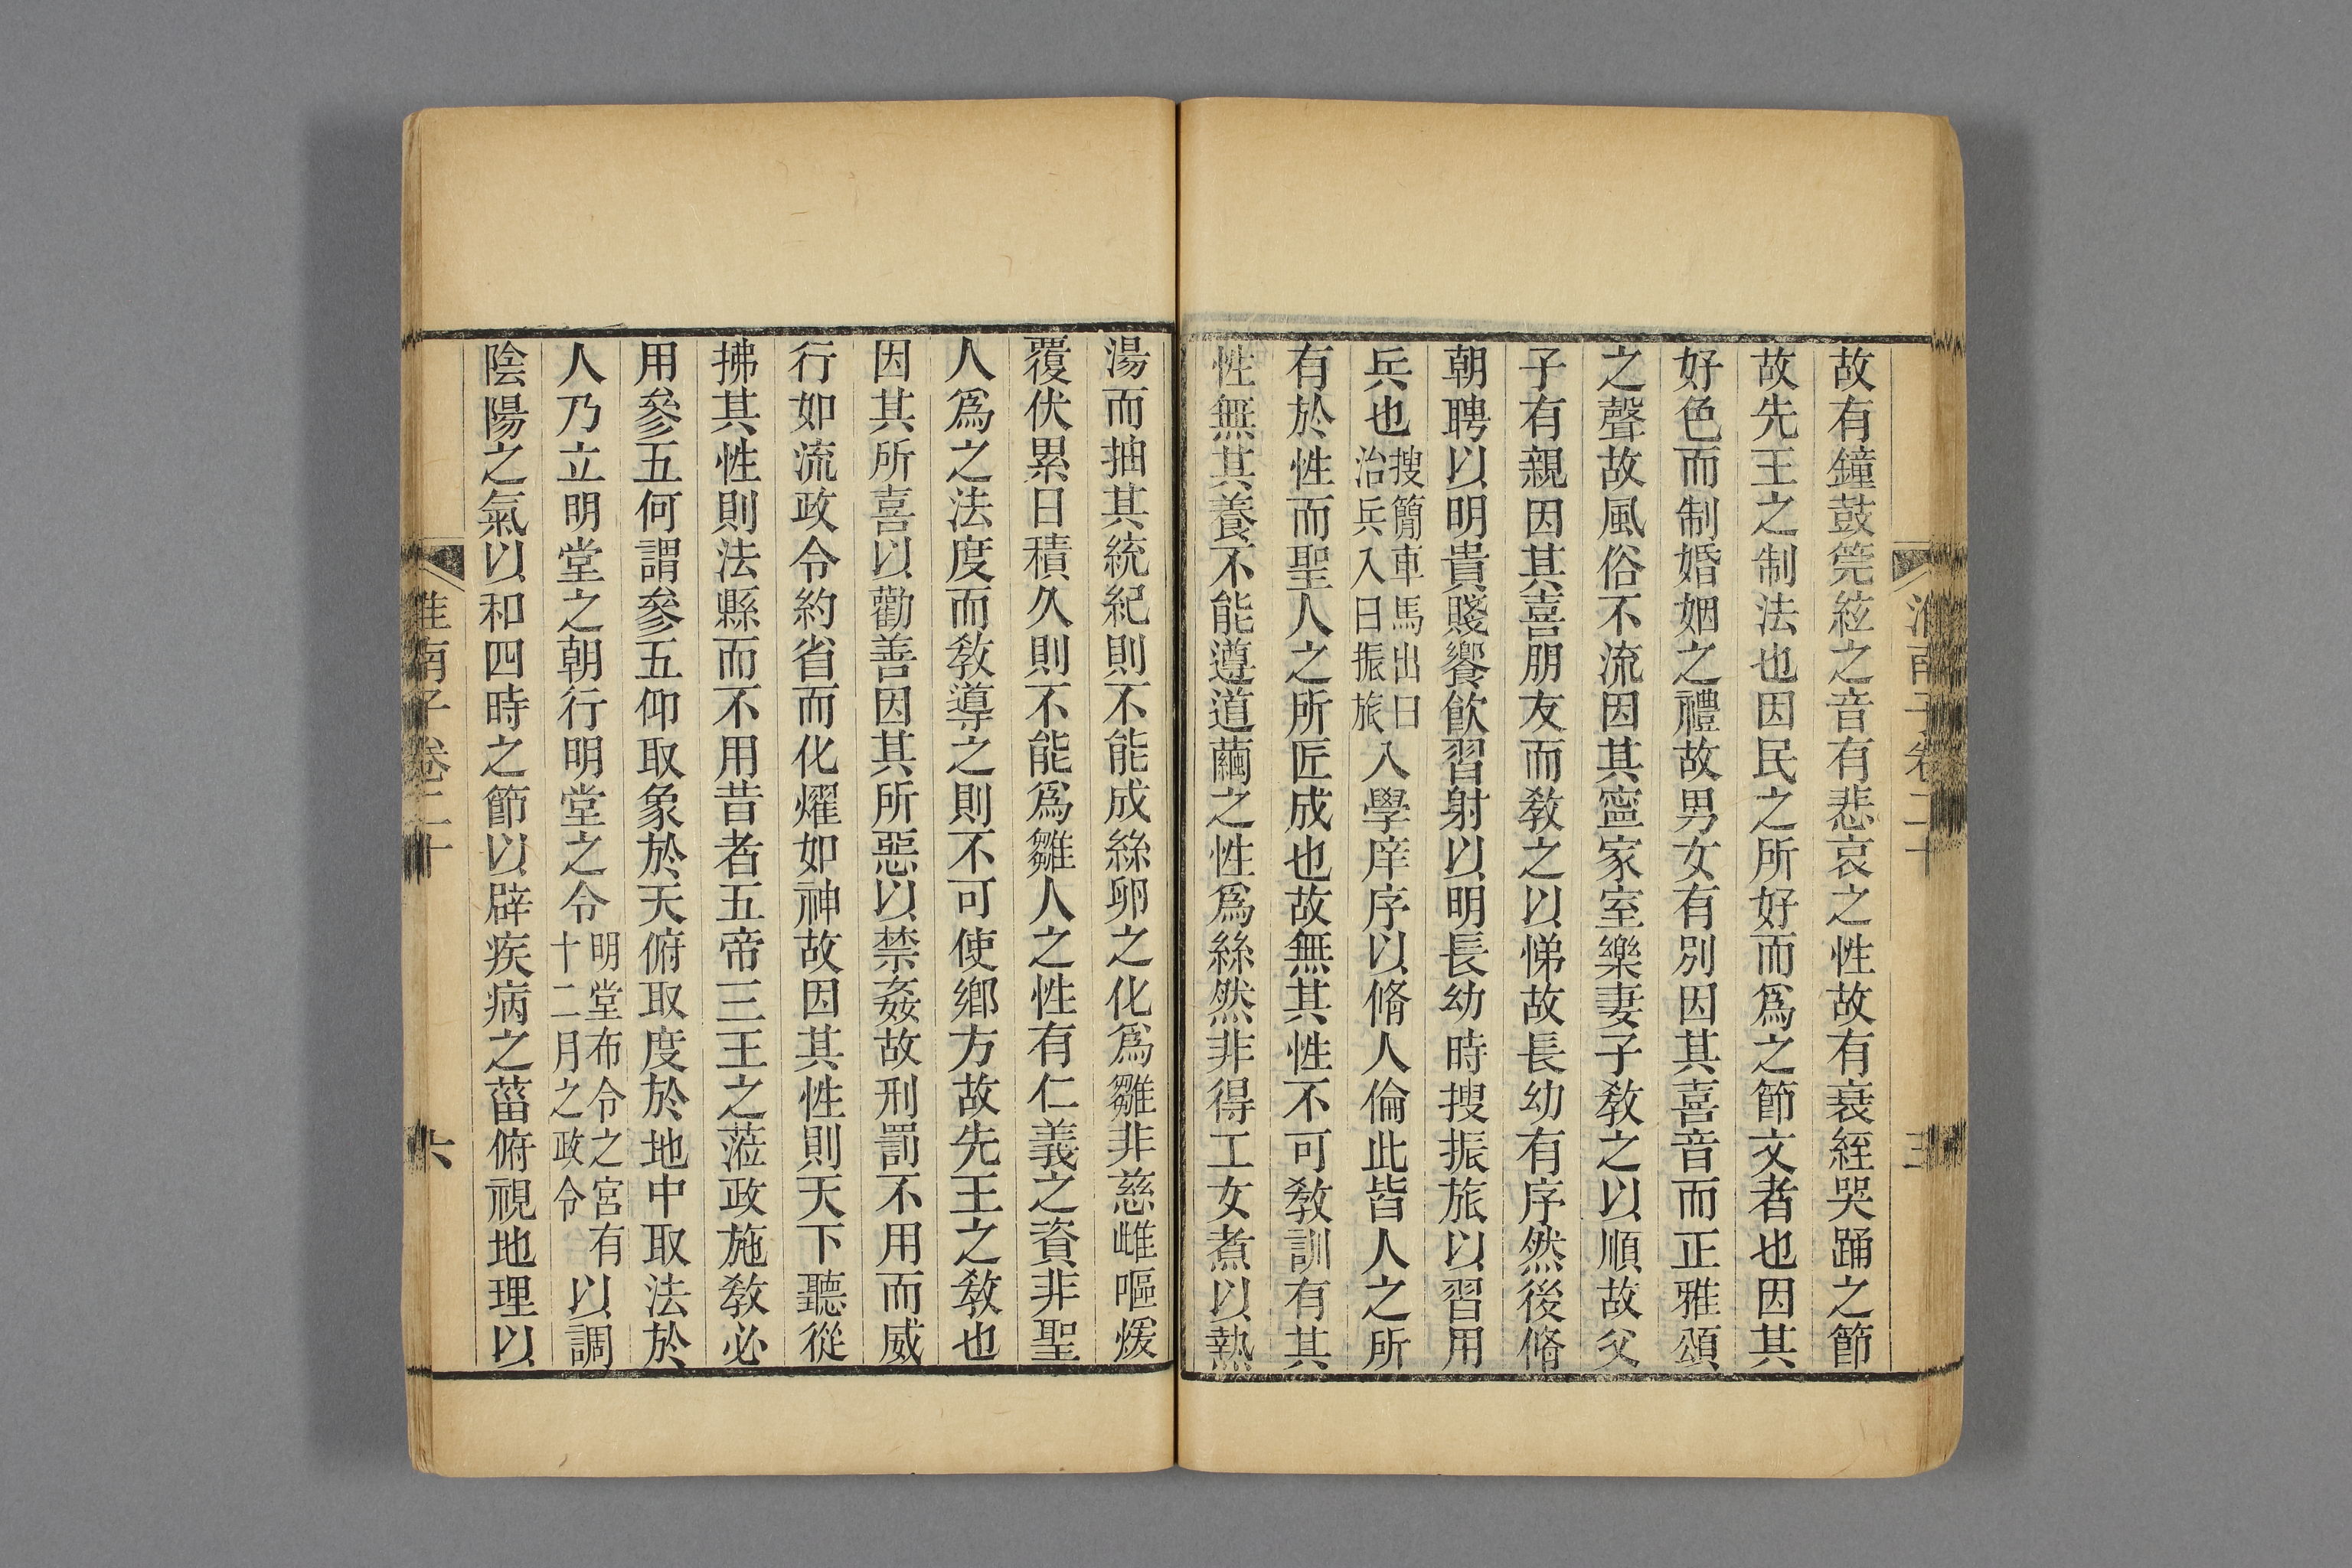 淮南子卷二十
故有鐘鼓筦絃之音有悲哀之性故有衰絰哭踊之節
故先王之制法也因民之所好而爲之節文者也因其
好色而制婚姻之禮故男女有別因其喜音而正雅頌
之聲故風俗不流因其寍家室樂妻子敎之以順故父
子有親因其喜朋友而敎之以悌故長幼有序然後脩
朝聘以明貴賤饗飮習射以明長幼時搜振旅以習用
兵也搜簡車馬出曰治兵入曰振旅入學庠序以脩人倫此皆人之所
有於性而聖人之所匠成也故無其性不可敎訓有其
性無其養不能遵道繭之性爲絲然非得工女煮以熱
湯而抽其統紀則不能成絲卵之化爲雛非慈雌嘔煖
覆伏累日積久則不能爲雛人之性有仁義之資非聖
人爲之法度而敎導之則不可使鄕方故先王之敎也
因其所喜以勸善因其所惡以禁姦故刑罰不用而威
行如流政令約省而化燿如神故因其性則天下聽從
拂其性則法縣而不用昔者五帝三王之蒞政施敎必
用參五何謂參五仰取象於天俯取度於地中取法於
人乃立明堂之朝行明堂之令明堂布令之宮有十二月之政令以調
陰陽之氣以和四時之節以辟疾病之菑俯視地理以
淮南子卷二十
六